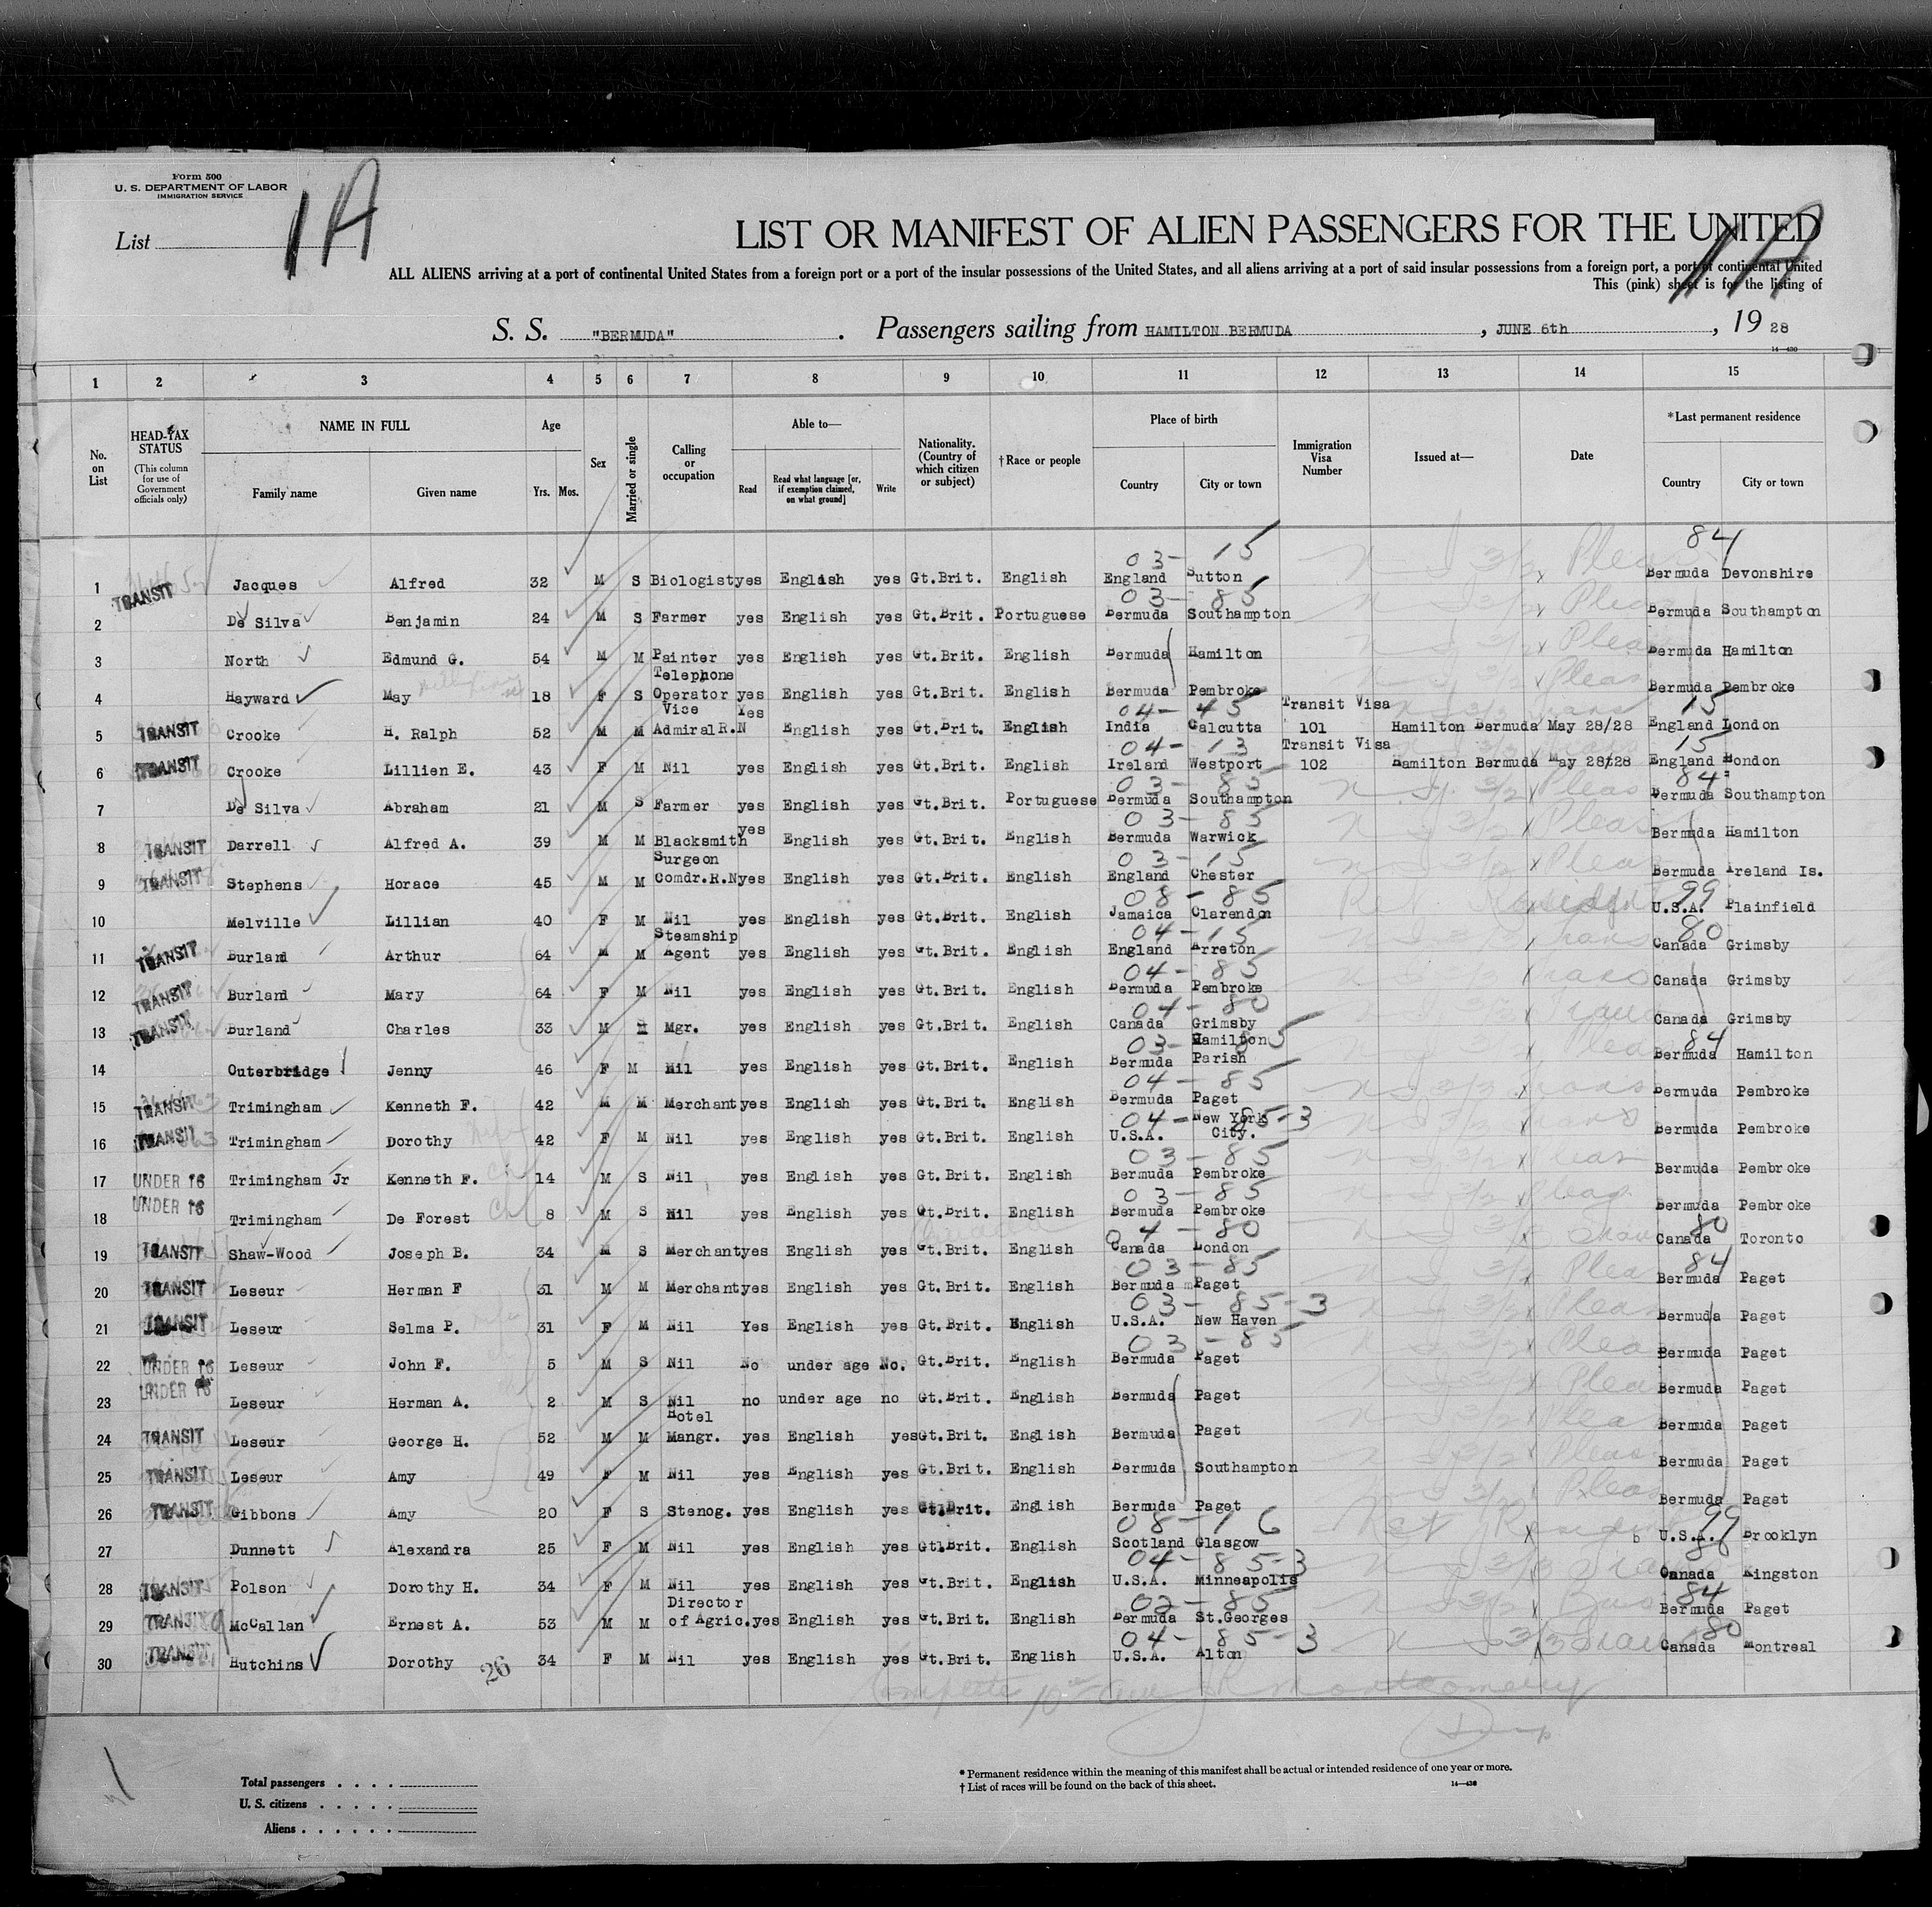 Form 500
U. S. DEPARTMENT OF LABOR
IMMIGRATION SERVICE
List 1A
1A
LIST OR MANIFEST OF ALIEN PASSENGERS FOR THE UNITED
ALL ALIENS arriving at a port of continental United States from a foreign port or a port of the insular possessions of the United States, and all aliens arriving at a port of said insular possessions from a foreign port, a port of continental United
This (pink) sheet is for the listing of
S. S. "BERMUDA". Passengers sailing from HAMILTON BERMUDA, JUNE 6th, 19 28
14-430
1 2 3 4 5 6 7 8 9 10 11 12 13 14 15
No. on List
HEAD-TAX STATUS (This column for use of Government officials only)
NAME IN FULL Family name Given name
Age Yrs. Mos.
Sex
Married or single
Calling or occupation
Able to— Read Read what language [or, if exemption claimed, on what ground] Write
Nationality. (Country of which citizen or subject)
†Race or people
Place of birth Country City or town
Immigration Visa Number
Issued at—
Date
*Last permanent residence Country City or town
1 TRANSIT Jacques Alfred 32 M S Biologist yes English yes Gt.Brit. English England Sutton 03- 15 Bermuda Devonshire 84
2 De Silva Benjamin 24 M S Farmer yes English yes Gt.Brit. Portuguese Bermuda Southampton 03- 85 Bermuda Southampton
3 North Edmund G. 54 M M Painter yes English yes Gt.Brit. English Bermuda Hamilton Bermuda Hamilton
4 Hayward May 18 F S Telephone Operator yes English yes Gt.Brit. English Bermuda Pembroke Bermuda Pembroke
5 TRANSIT Crooke H. Ralph 52 M M Vice Admiral R.N Yes English yes Gt.Brit. English India Calcutta 04- 45 Transit Visa 101 Hamilton Bermuda May 28/28 England London 15
6 TRANSIT Crooke Lillien E. 43 F M Nil yes English yes Gt.Brit. English Ireland Westport 04- 13 Transit Visa 102 Hamilton Bermuda May 28/28 England London 15
7 De Silva Abraham 21 M S Farmer yes English yes Gt.Brit. Portuguese Bermuda Southampton 03- 85 Bermuda Southampton 84
8 TRANSIT Darrell Alfred A. 39 M M Blacksmith yes English yes Gt.Brit. English Bermuda Warwick 03- 85 Bermuda Hamilton
9 TRANSIT Stephens Horace 45 M M Surgeon Comdr.R.N yes English yes Gt.Brit. English England Chester 03- 15 Bermuda Ireland Is.
10 Melville Lillian 40 F M Nil yes English yes Gt.Brit. English Jamaica Clarendon 08- 85 U.S.A. Plainfield 99
11 TRANSIT Burland Arthur 64 M M Steamship Agent yes English yes Gt.Brit. English England Arreton 04- 15 Canada Grimsby 80
12 TRANSIT Burland Mary 64 F M Nil yes English yes Gt.Brit. English Bermuda Pembroke 04- 85 Canada Grimsby
13 TRANSIT Burland Charles 33 M M Mgr. yes English yes Gt.Brit. English Canada Grimsby 04- 80 Canada Grimsby
14 Outerbridge Jenny 46 F M Nil yes English yes Gt.Brit. English Bermuda Hamilton Parish 03- 85 Bermuda Hamilton 84
15 TRANSIT Trimingham Kenneth F. 42 M M Merchant yes English yes Gt.Brit. English Bermuda Paget 04- 85 Bermuda Pembroke
16 TRANSIT Trimingham Dorothy 42 F M Nil yes English yes Gt.Brit. English U.S.A. New York City. 04- 85-3 Bermuda Pembroke
17 UNDER 16 Trimingham Jr Kenneth F. 14 M S Nil yes English yes Gt.Brit. English Bermuda Pembroke 03- 85 Bermuda Pembroke
18 UNDER 16 Trimingham De Forest 8 M S Nil yes English yes Gt.Brit. English Bermuda Pembroke 03- 85 Bermuda Pembroke
19 TRANSIT Shaw-Wood Joseph B. 34 M S Merchant yes English yes Gt.Brit. English Canada London 04- 80 Canada Toronto 80
20 TRANSIT Leseur Herman F 31 M M Merchant yes English yes Gt.Brit. English Bermuda Paget 03- 85 Bermuda Paget 84
21 TRANSIT Leseur Selma P. 31 F M Nil Yes English yes Gt.Brit. English U.S.A. New Haven 03- 85-3 Bermuda Paget
22 UNDER 16 Leseur John F. 5 M S Nil No under age No. Gt.Brit. English Bermuda Paget 03- 85 Bermuda Paget
23 UNDER 16 Leseur Herman A. 2 M S Nil no under age no Gt.Brit. English Bermuda Paget Bermuda Paget
24 TRANSIT Leseur George H. 52 M M Hotel Mangr. yes English yes Gt.Brit. English Bermuda Paget Bermuda Paget
25 TRANSIT Leseur Amy 49 F M Nil yes English yes Gt.Brit. English Bermuda Southampton Bermuda Paget
26 TRANSIT Gibbons Amy 20 F S Stenog. yes English yes Gt.Brit. English Bermuda Paget Bermuda Paget
27 Dunnett Alexandra 25 F M Nil yes English yes Gt.Brit. English Scotland Glasgow 08- 16 U.S.A. Brooklyn 99
28 TRANSIT Polson Dorothy H. 34 F M Nil yes English yes Gt.Brit. English U.S.A. Minneapolis 04- 85-3 Canada Kingston 80
29 TRANSIT McCallan Ernest A. 53 M M Director of Agric. yes English yes Gt.Brit. English Bermuda St.Georges 02- 85 Bermuda Paget 84
30 TRANSIT Hutchins Dorothy 34 F M Nil yes English yes Gt.Brit. English U.S.A. Alton 04- 85-3 Canada Montreal 80
26
Total passengers
U. S. citizens
Aliens
* Permanent residence within the meaning of this manifest shall be actual or intended residence of one year or more.
† List of races will be found on the back of this sheet.
14-430